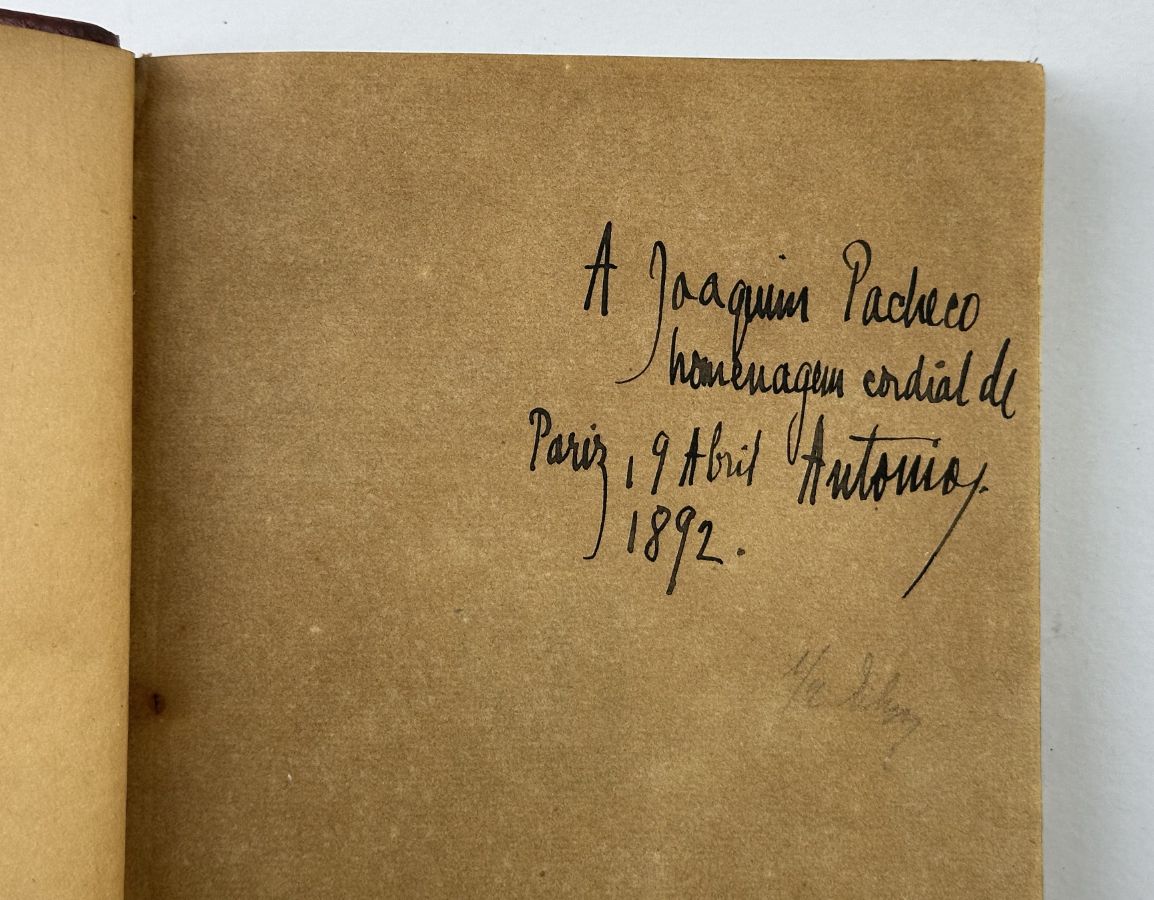 A Joaquim Pacheco
homenagem cordial de
Pariz, 9 Abril Antonio.
1892.